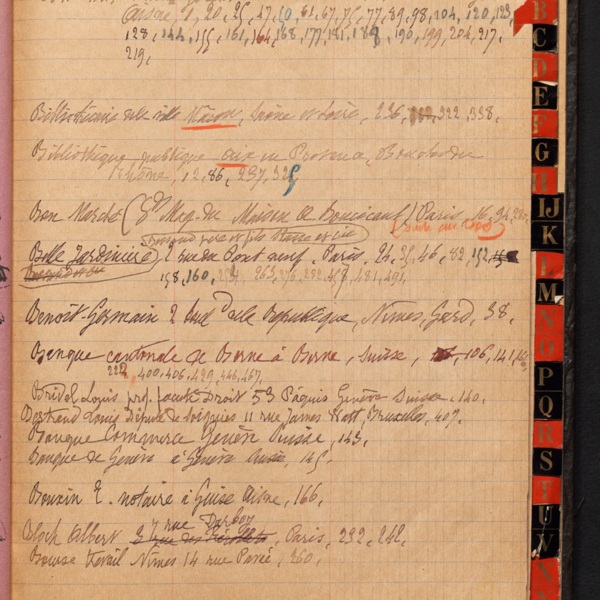 Aisne, 1, 20, 25, 47, 50, 61, 67, 75, 77, 89, 98, 104, 120, 123,
128, 144, 155, 161, 164, 168, 177, 181, 184, 190, 199, 204, 217,
219,
Bibliothécaire de la ville Mâcon, Saône et Loire, 236, 322, 338,
Bibliothèque publique Aix en Provence, Bouches du
Rhône, 12, 86, 237, 325
Bon Marché (Gds Mag. du Maison A. Boucicaut) Paris, 16, 94,
(Suite au Repos)
Bessand père et fils Stasse et Cie
Belle Jardinière, 2 rue du Pont neuf, Paris, 24, 35, 46, 82, 152,
158, 160, 254, 263, 276, 282, 458, 481, 491,
Benoît-Germain 2 bd de la République, Nîmes, Gard, 38,
Banque cantonale de Berne à Berne, Suisse, 106, 141,
222, 400, 406, 429, 446, 467,
Bridel Louis prof. faculté Droit 53 Pâquis Genève Suisse, 140,
Bertrand Louis député de Soignies 11 rue James Watt, Bruxelles, 407,
Banque Commerce Genève Suisse, 143,
Banque de Genève à Genève Suisse, 145,
Bouxin E. notaire à Guise Aisne, 166,
7 rue Darboy
Bloch Albert, Paris, 232, 242,
Bourse travail Nîmes 14 rue Pavée, 260,
B
C
D
E
F
G
H
IJ
K
L
M
N
O
P
Q
R
S
T
U
V